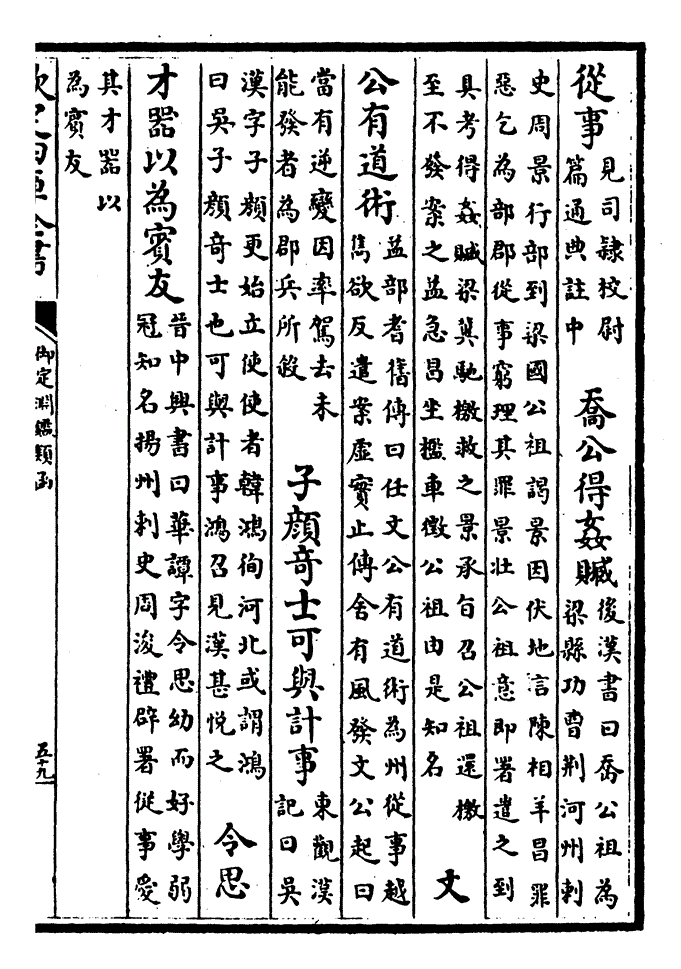 從事
見司隸校尉
篇通典註中
喬公得姦贓
後漢書曰喬公祖為
梁縣功曹荆河州刺
史周景行部到梁國公祖謁景因伏地言陳相羊昌罪
惡乞為部郡從事窮理其罪景壯公祖意即署遣之到
具考得姦贓梁冀馳檄救之景承旨召公祖還檄
至不發案之益急昌坐檻車徵公祖由是知名
文
公有道術
益部耆舊傳曰任文公有道術為州從事越
雋欲反遣案虛實止傳舍有風發文公起曰
當有逆變因率駕去未
能發者為郡兵所殺
子顔竒士可與計事
東觀漢
記曰吳
漢字子顔更始立使使者韓鴻徇河北或謂鴻
曰吳子顔竒士也可與計事鴻召見漢甚悦之
令思
才器以為賓友
晉中興書曰華譚字令思幼而好學弱
冠知名揚州刺史周浚禮辟署從事愛
其才器以
為賓友
欽定四庫全書
御定淵鑑類函
五十九